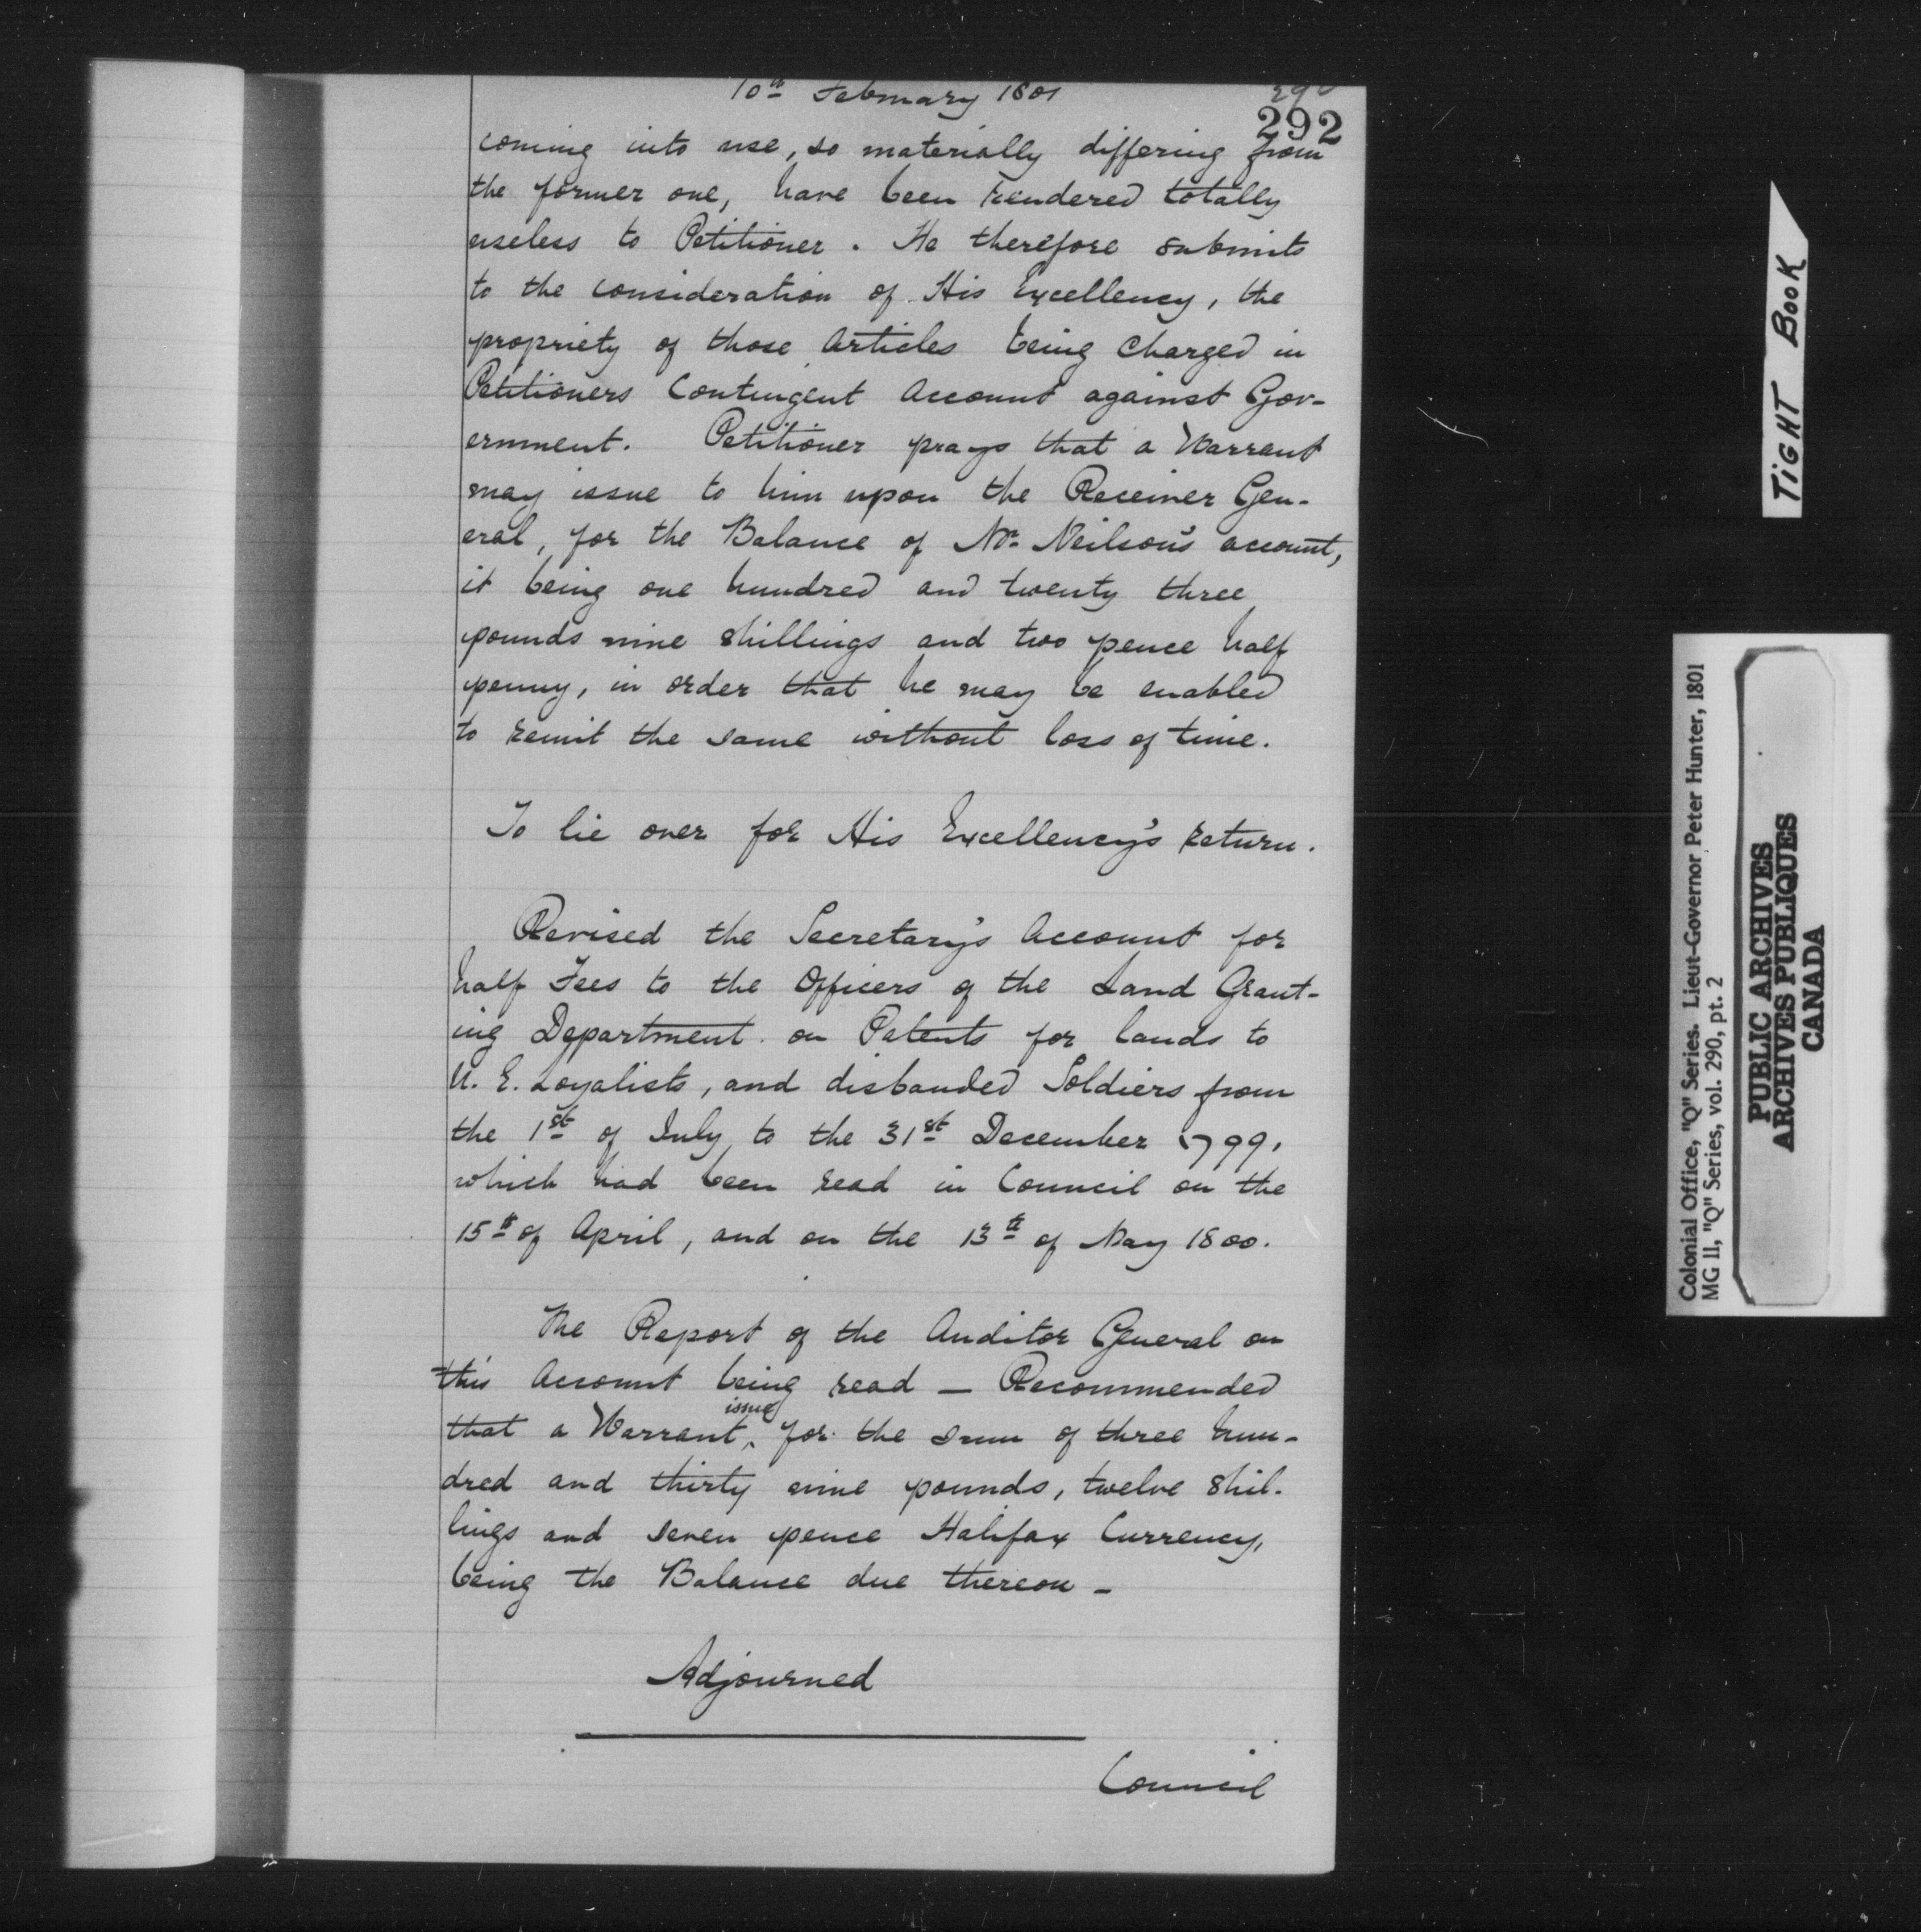 10th February 1801
292
coming into use, so materially differing from
the former one, have been rendered totally
useless to Petitioner. He therefore submits
to the consideration of His Excellency, the
propriety of those Articles being Charged in
Petitioners Contingent Account against Gov-
ernment. Petitioner prays that a Warrant
may issue to him upon the Receiver Gen-
eral, for the Balance of Mr. Neilson's account,
it being one hundred and twenty three
pounds nine shillings and two pence half
penny, in order that he may be enabled
to remit the same without loss of time.
To lie over for His Excellency's return.
Revised the Secretary's Account for
half Fees to the Officers of the Land Grant-
ing Department on Patents for lands to
U. E. Loyalists, and disbanded Soldiers from
the 1st of July to the 31st December 1799,
which had been read in Council on the
15th of April, and on the 13th of May 1800.
The Report of the Auditor General on
this Account being read — Recommended
that a Warrant issue for the sum of three hun-
dred and thirty nine pounds, twelve shil-
lings and seven pence Halifax Currency,
being the Balance due thereon —
Adjourned
Council
TIGHT BOOK
Colonial Office, "Q" Series. Lieut-Governor Peter Hunter, 1801
MG 11, "Q" Series, vol. 290, pt. 2
PUBLIC ARCHIVES
ARCHIVES PUBLIQUES
CANADA